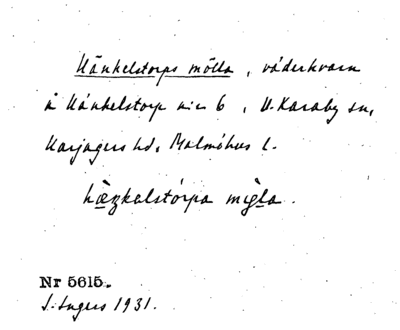 Hänkelstorps mölla, väderkvarn
å Hänkelstorp nr 6, V. Karaby sn,
Harjagers hd, Malmöhus l.
hæŋkəlstórpa mø̀la.
Nr 5615.
S. Ingers 1931.